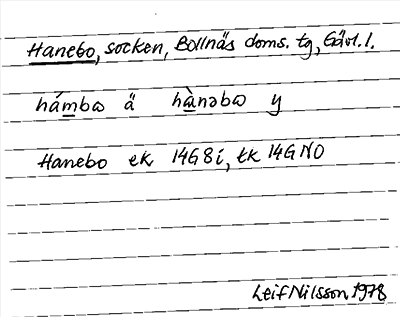 Hanebo, socken, Bollnäs doms. tg, Gävl. l.
hámbɷ ä hànəbɷ y
Hanebo ek 14G8i, tk 14GNO
Leif Nilsson 1978